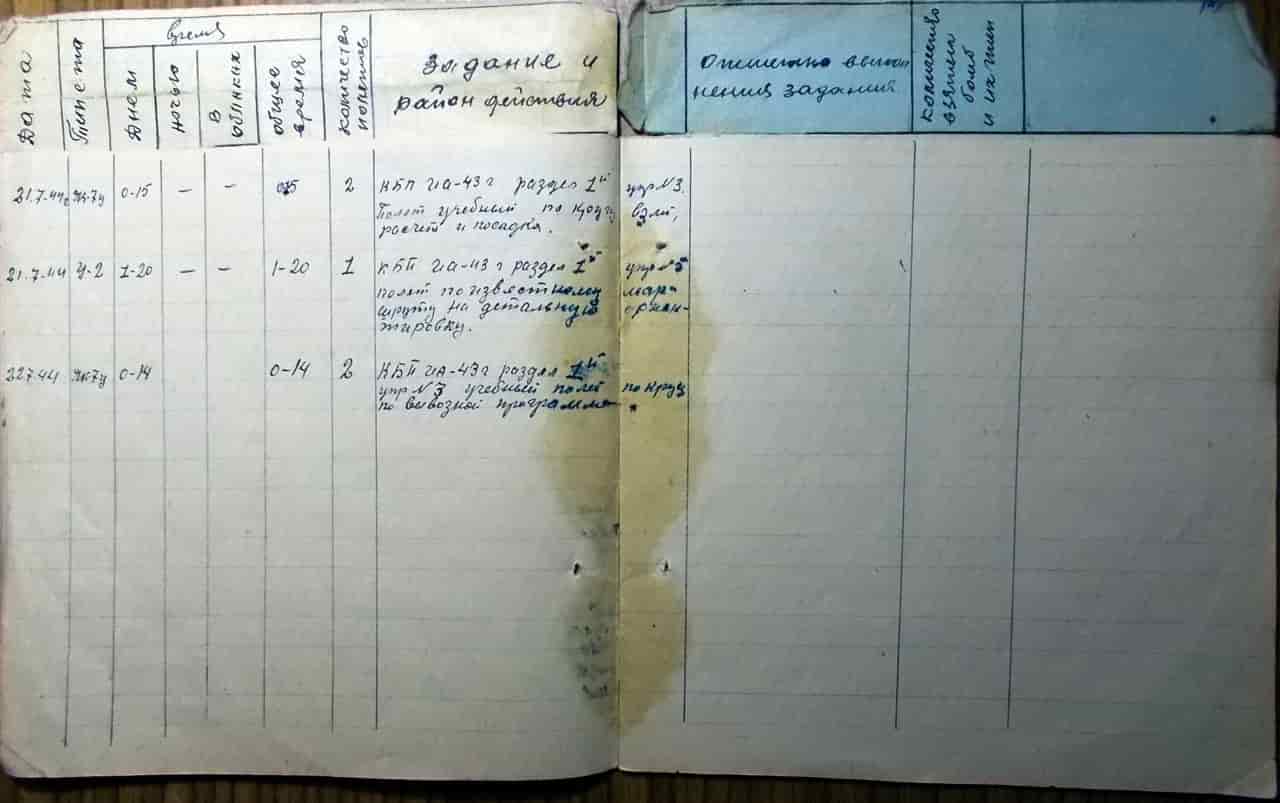 Дата
Тип с-та
время
Днем
ночью
в облаках
общее время
количество полетов
Задание и
район действия
Отметка выпол
нения задания
количество взятых бомб и их тип
21.7.44г Як-7у 0-15 — — 0-15 2 КБП ИА-43 г раздел 1й упр №3.
Полет учебный по кругу взлет,
расчет и посадка.
21.7.44 У-2 1-20 — — 1-20 1 КБП ИА-43 г раздел 1й упр №5
полет по известному мар-
шруту на детальную ориен-
тировку.
22.7.44 Як-7у 0-14 0-14 2 КБП ИА-43 г раздел 1й
упр №3 учебный полет по кругу
по вывозной программе.